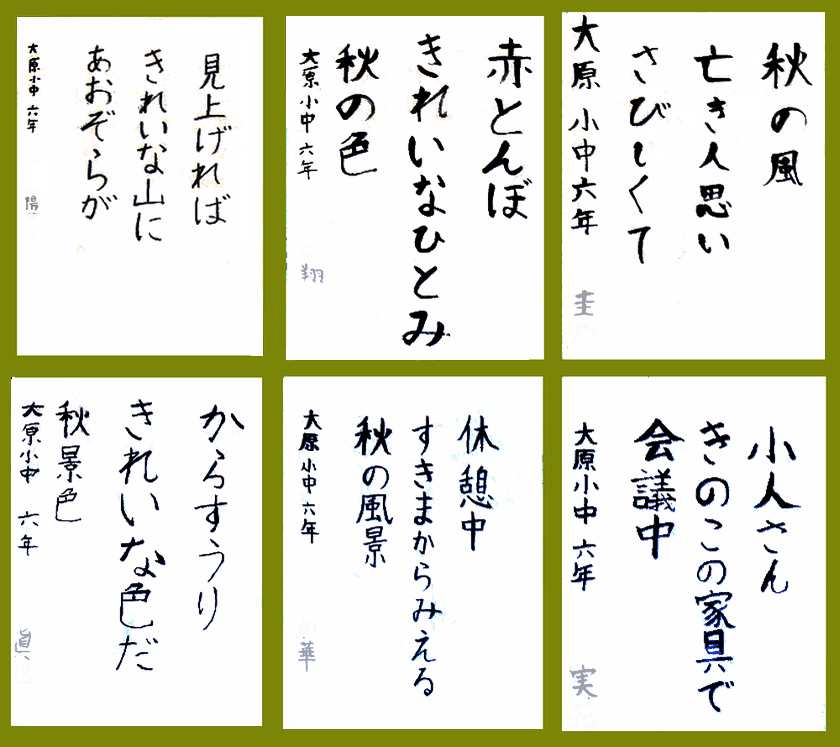 秋の風
亡き人思い
さびしくて
大原小中六年
圭
赤とんぼ
きれいなひとみ
秋の色
大原小中六年
翔
見上げれば
きれいな山に
あおぞらが
大原小中六年
陽
小人さん
きのこの家具で
会議中
大原小中六年
実
休憩中
すきまからみえる
秋の風景
大原小中六年
華
からすうり
きれいな色だ
秋景色
大原小中六年
眞